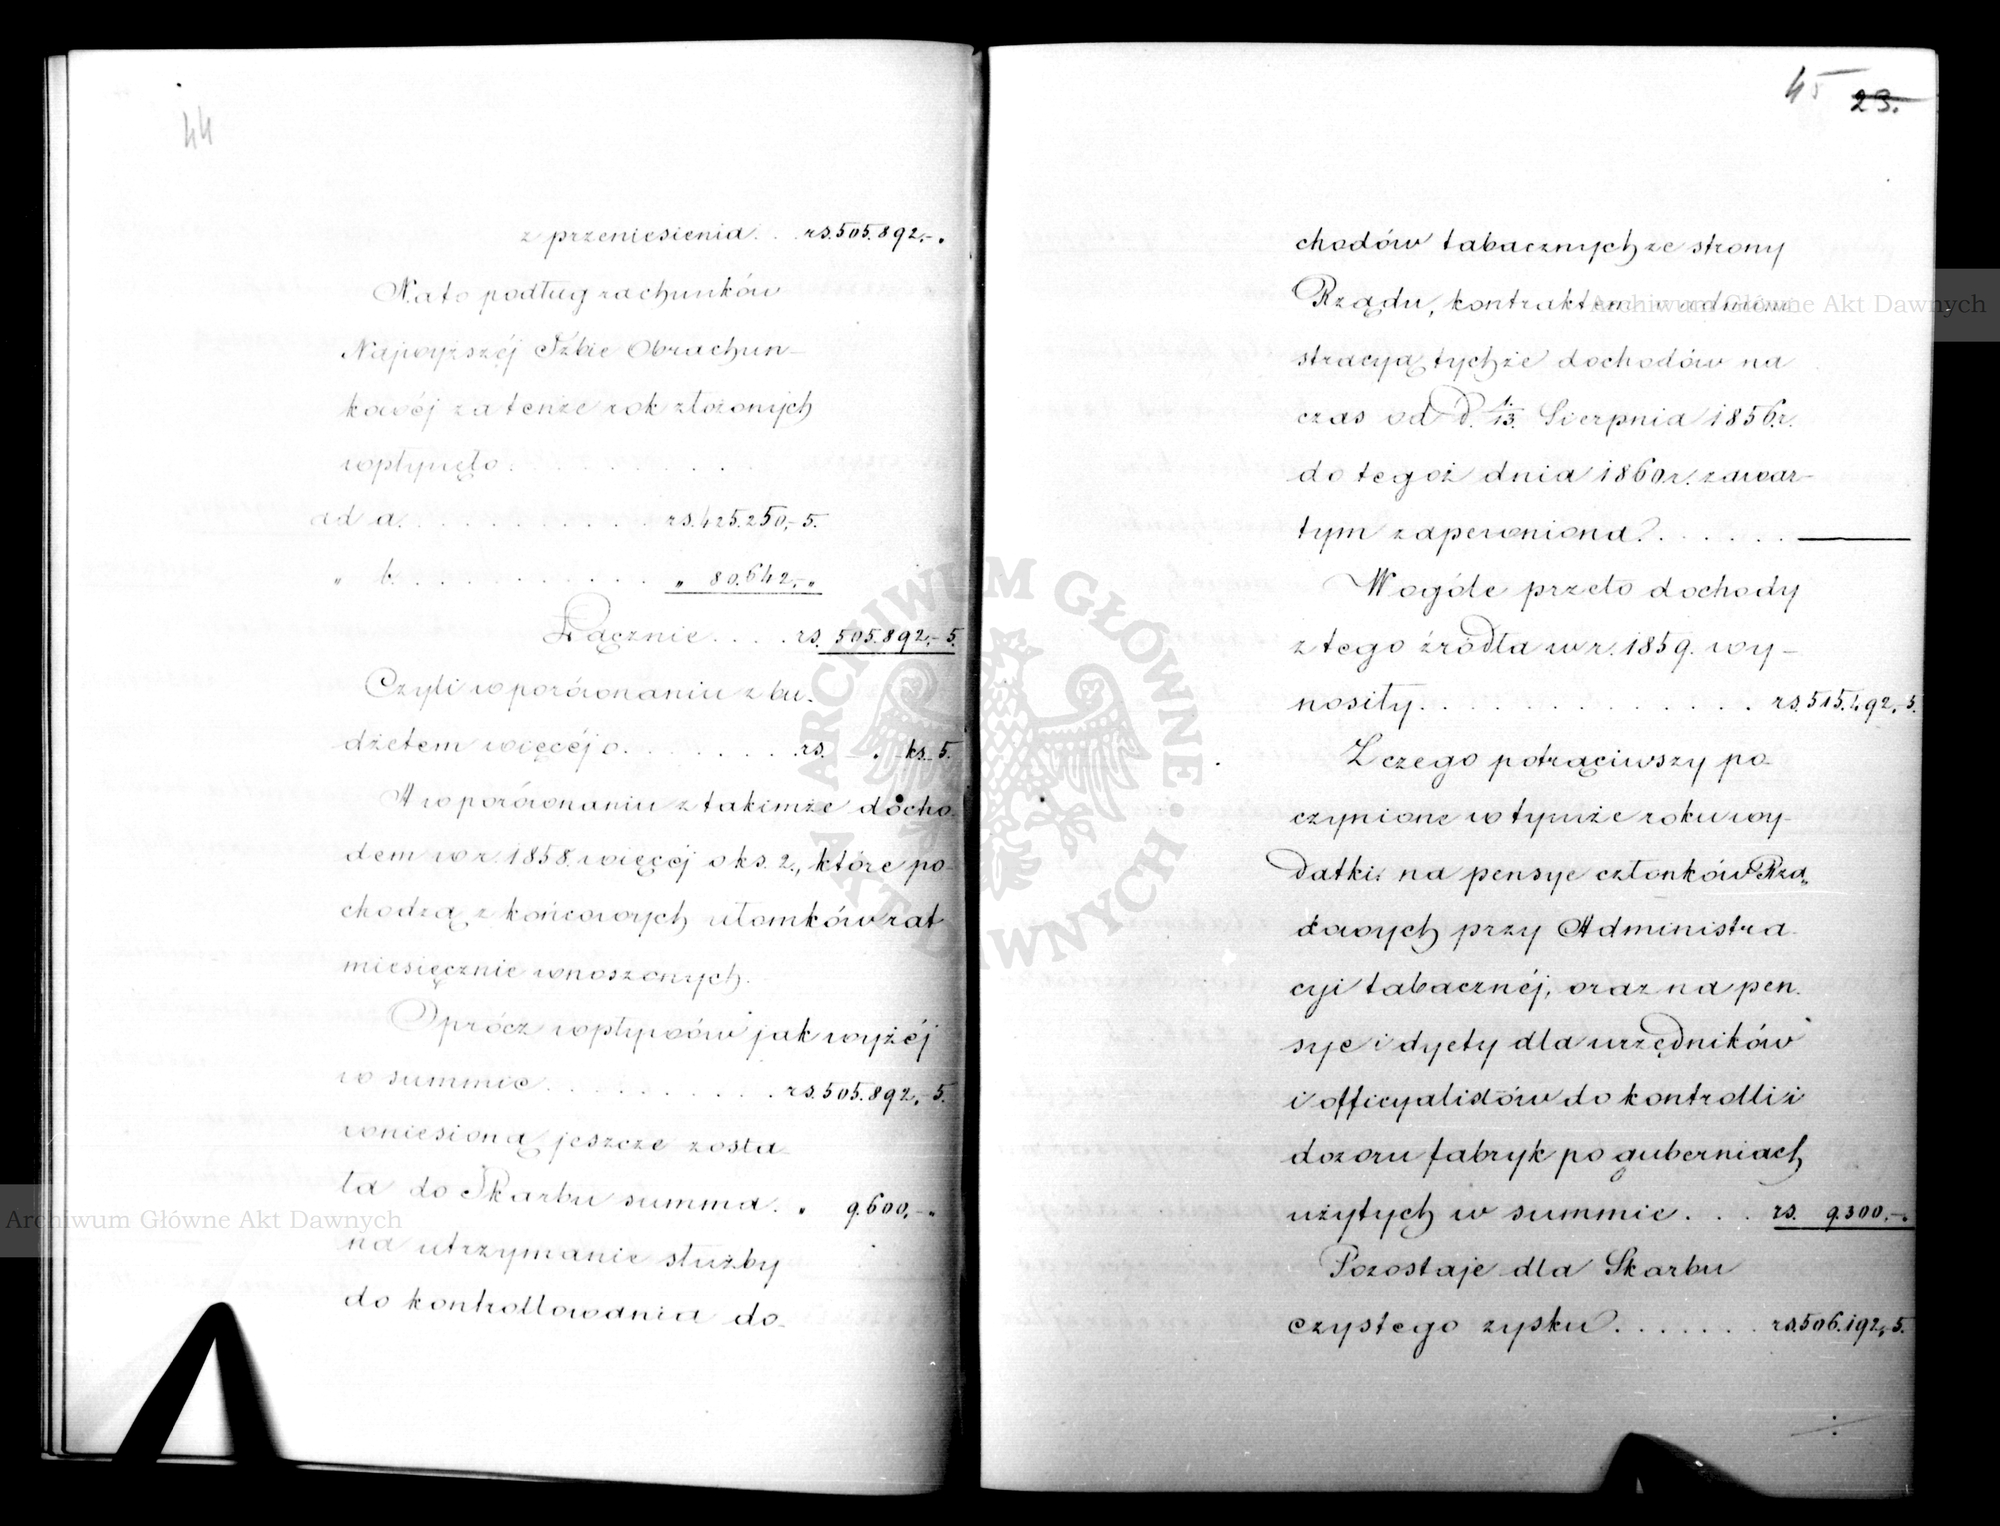 44
z przeniesienia . . rs. 505.892,- „
Na to podług rachunków
Najwyższéj Izbie Obrachun-
kowéj za tenże rok złożonych
wpłynęło . . . . . . . . .
ad a. . . . . . . . . . rs. 425.250,- 5.
„ b. . . . . . . . . . „ 80.642,- „
Łącznie . . . . rs. 505.892,- 5.
Czyli w porównaniu z bu-
dżetem więcéj o . . . . . . . rs. „ ks. 5.
A w porównaniu z takimże docho-
dem w r. 1858. więcéj o ks. 2., które po-
chodzą z końcowych ułomków rat
miesięcznie wnoszonych.
Oprócz wpływów jak wyżéj
w summie . . . . . . . . . rs. 505.892,- 5.
wniesioną jeszcze zosta-
ła do Skarbu summa . „ 9.600,- „
na utrzymanie służby
do kontrollowania do-
45 23.
chodów tabacznych ze strony
Rządu, kontraktem o admini-
stracyą tychże dochodów na
czas od d. 1/13. Sierpnia 1856 r.
do tegoż dnia 1860 r. zawar-
tym zapewniona . . . . . .
Wogóle przeto dochody
z tego źródła w r. 1859. wy-
nosiły . . . . . . . . . . . rs. 515.492,- 5.
Z czego potrąciwszy po-
czynione w tymże roku wy-
datki: na pensye członków Rzą-
dowych przy Administra-
cyi tabacznéj, oraz na pen-
sye i dyety dla urzędników
i officyalistów do kontrolli i
dozoru fabryk po guberniach
użytych w summie . . . rs. 9.300,- „
Pozostaje dla Skarbu
czystego zysku . . . . . . . rs. 506.192,- 5.
Archiwum Główne Akt Dawnych
Archiwum Główne Akt Dawnych
ARCHIWUM GŁÓWNE AKT DAWNYCH